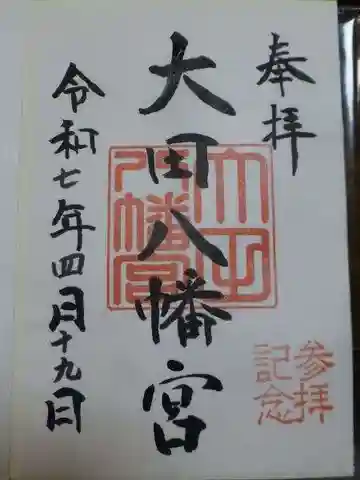 奉拝
大田八幡宮
令和七年四月十九日
大田
八幡宮
参拝
記念